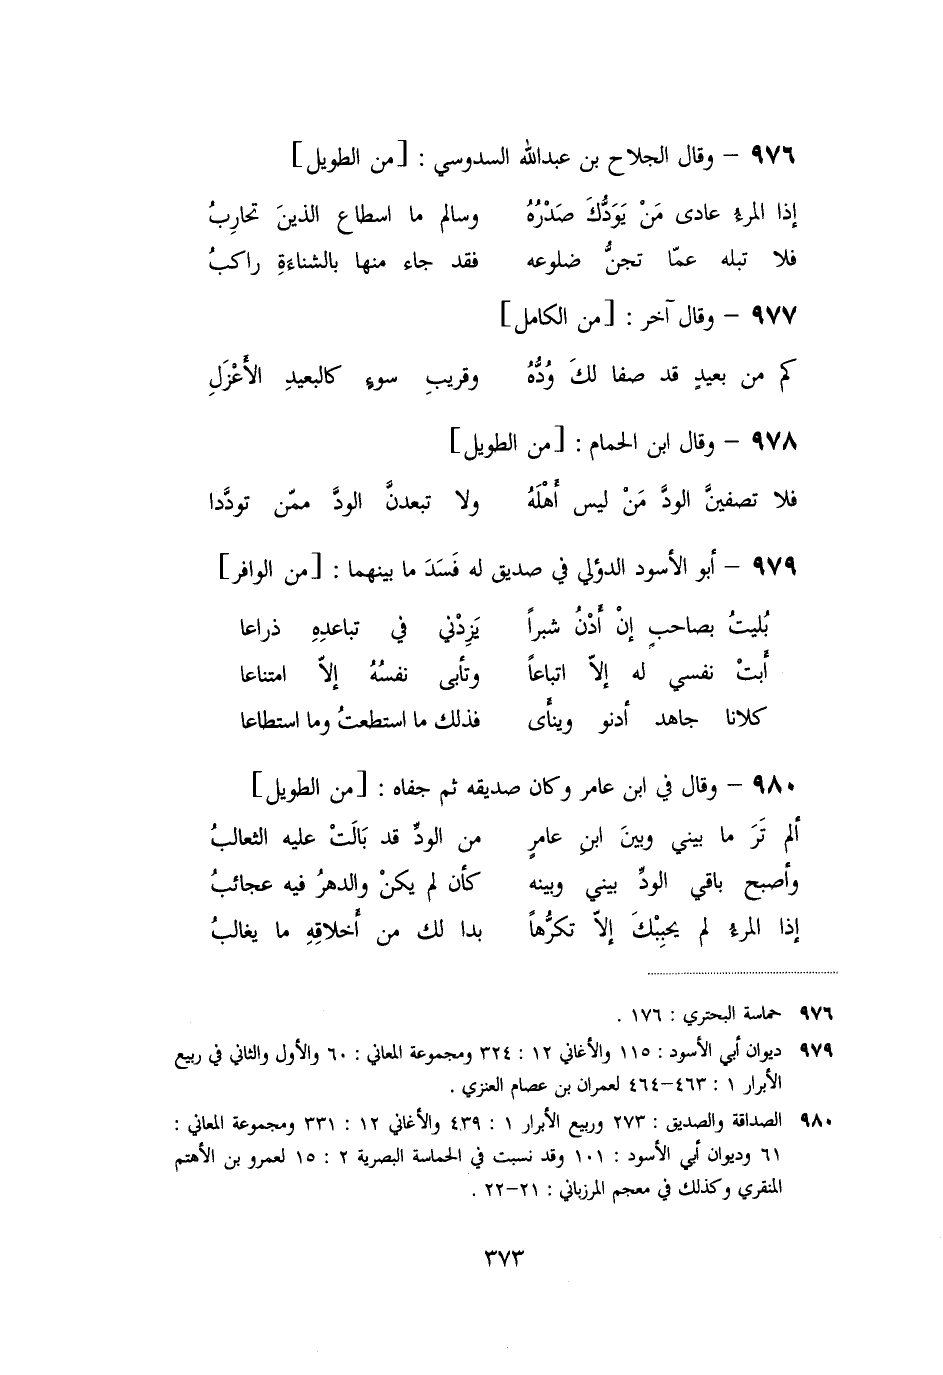 ٩٧٦ – وقال الجلاح بن عبدالله السدوسي : [من الطويل]
إذا المرءُ عادى مَنْ يَوَدُّكَ صَدْرُهُ وسالم ما اسطاع الذينَ تحارِبُ
فلا تبله عمّا تجنُّ ضلوعه فقد جاء منها بالشناءَةِ راكبُ
٩٧٧ – وقال آخر : [من الكامل]
كم من بعيدٍ قد صفا لكَ وُدُّهُ وقريبِ سوءٍ كالبعيدِ الأَعْزَلِ
٩٧٨ – وقال ابن الحمام : [من الطويل]
فلا تصفينَّ الودَّ مَنْ ليس أَهْلَهُ ولا تبعدنَّ الودَّ ممّن تودَّدا
٩٧٩ – أبو الأسود الدؤلي في صديق له فَسَدَ ما بينهما : [من الوافر]
بُليتُ بصاحبٍ إنْ أَدْنُ شبراً يَزِدْني في تباعدِهِ ذراعا
أَبتْ نفسي له إلاّ اتباعاً وتأبى نفسُهُ إلاّ امتناعا
كلانا جاهد أدنو وينأَى فذلك ما استطعتُ وما استطاعا
٩٨٠ – وقال في ابن عامر وكان صديقه ثم جفاه : [من الطويل]
ألم تَرَ ما بيني وبينَ ابنِ عامرٍ من الودِّ قد بَالَتْ عليه الثعالبُ
وأصبح باقي الودِّ بيني وبينه كأن لم يكنْ والدهرُ فيه عجائبُ
إذا المرءُ لم يحبِبْكَ إلاّ تكرُّهاً بدا لك من أَخلاقِهِ ما يغالبُ
٩٧٦ حماسة البحتري : ١٧٦ .
٩٧٩ ديوان أبي الأسود : ١١٥ والأغاني ١٢ : ٣٢٤ ومجموعة المعاني : ٦٠ والأول والثاني في ربيع
الأبرار ١ : ٤٦٣–٤٦٤ لعمران بن عصام العنزي .
٩٨٠ الصداقة والصديق : ٢٧٣ وربيع الأبرار ١ : ٤٣٩ والأغاني ١٢ : ٣٣١ ومجموعة المعاني :
٦١ وديوان أبي الأسود : ١٠١ وقد نسبت في الحماسة البصرية ٢ : ١٥ لعمرو بن الأهتم
المنقري وكذلك في معجم المرزباني : ٢١–٢٢ .
٣٧٣